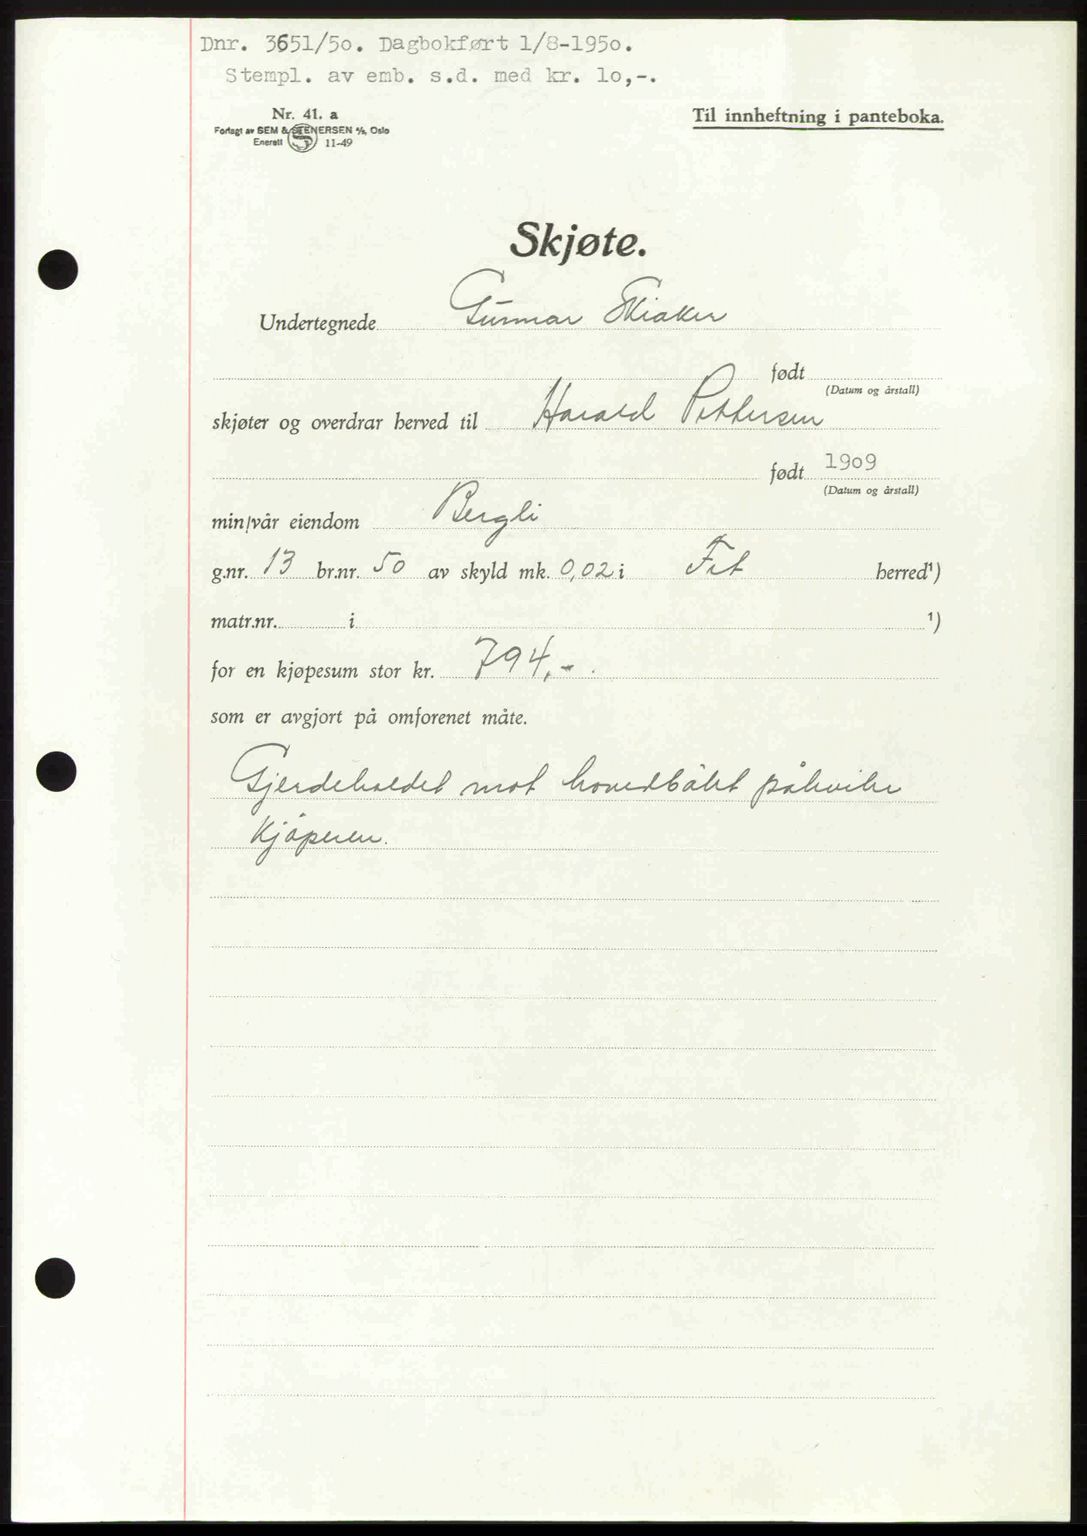 Dnr. 3651/50. Dagbokført 1/8-1950.
Stempl. av emb. s.d. med kr. 10,-.
Nr. 41. a
Forlagt av SEM & STENERSEN A/S, Oslo
Enerett S 11-49
Til innheftning i panteboka.
Skjøte.
Undertegnede Gunnar Skiaker
født
(Datum og årstall)
skjøter og overdrar herved til Harald Pettersen
født 1909
(Datum og årstall)
min/vår eiendom Bergli
g.nr. 13 br.nr. 50 av skyld mk. 0,02 i Fet herred¹)
matr.nr. i ¹)
for en kjøpesum stor kr. 794,-.
som er avgjort på omforenet måte.
Gjerdeholdet mot hovedbølet påhviler
Kjøperen.